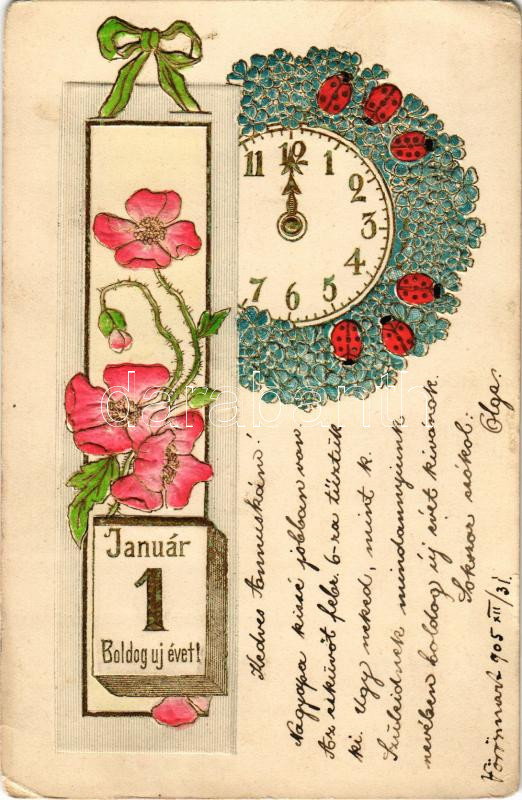 11
12
1
2
3
4
5
6
7
Január
1
Boldog uj évet!
darabanth
Kedves Annuskám!
Nagyapa kissé jobban van
Az esküvőt febr. 6-ra tűzték
ki. Ugy neked, mint k.
Szüleidnek mindannyiunk
nevében boldog új évet kívánok.
Sokszor csókol:
Olga.
905 XII/31.